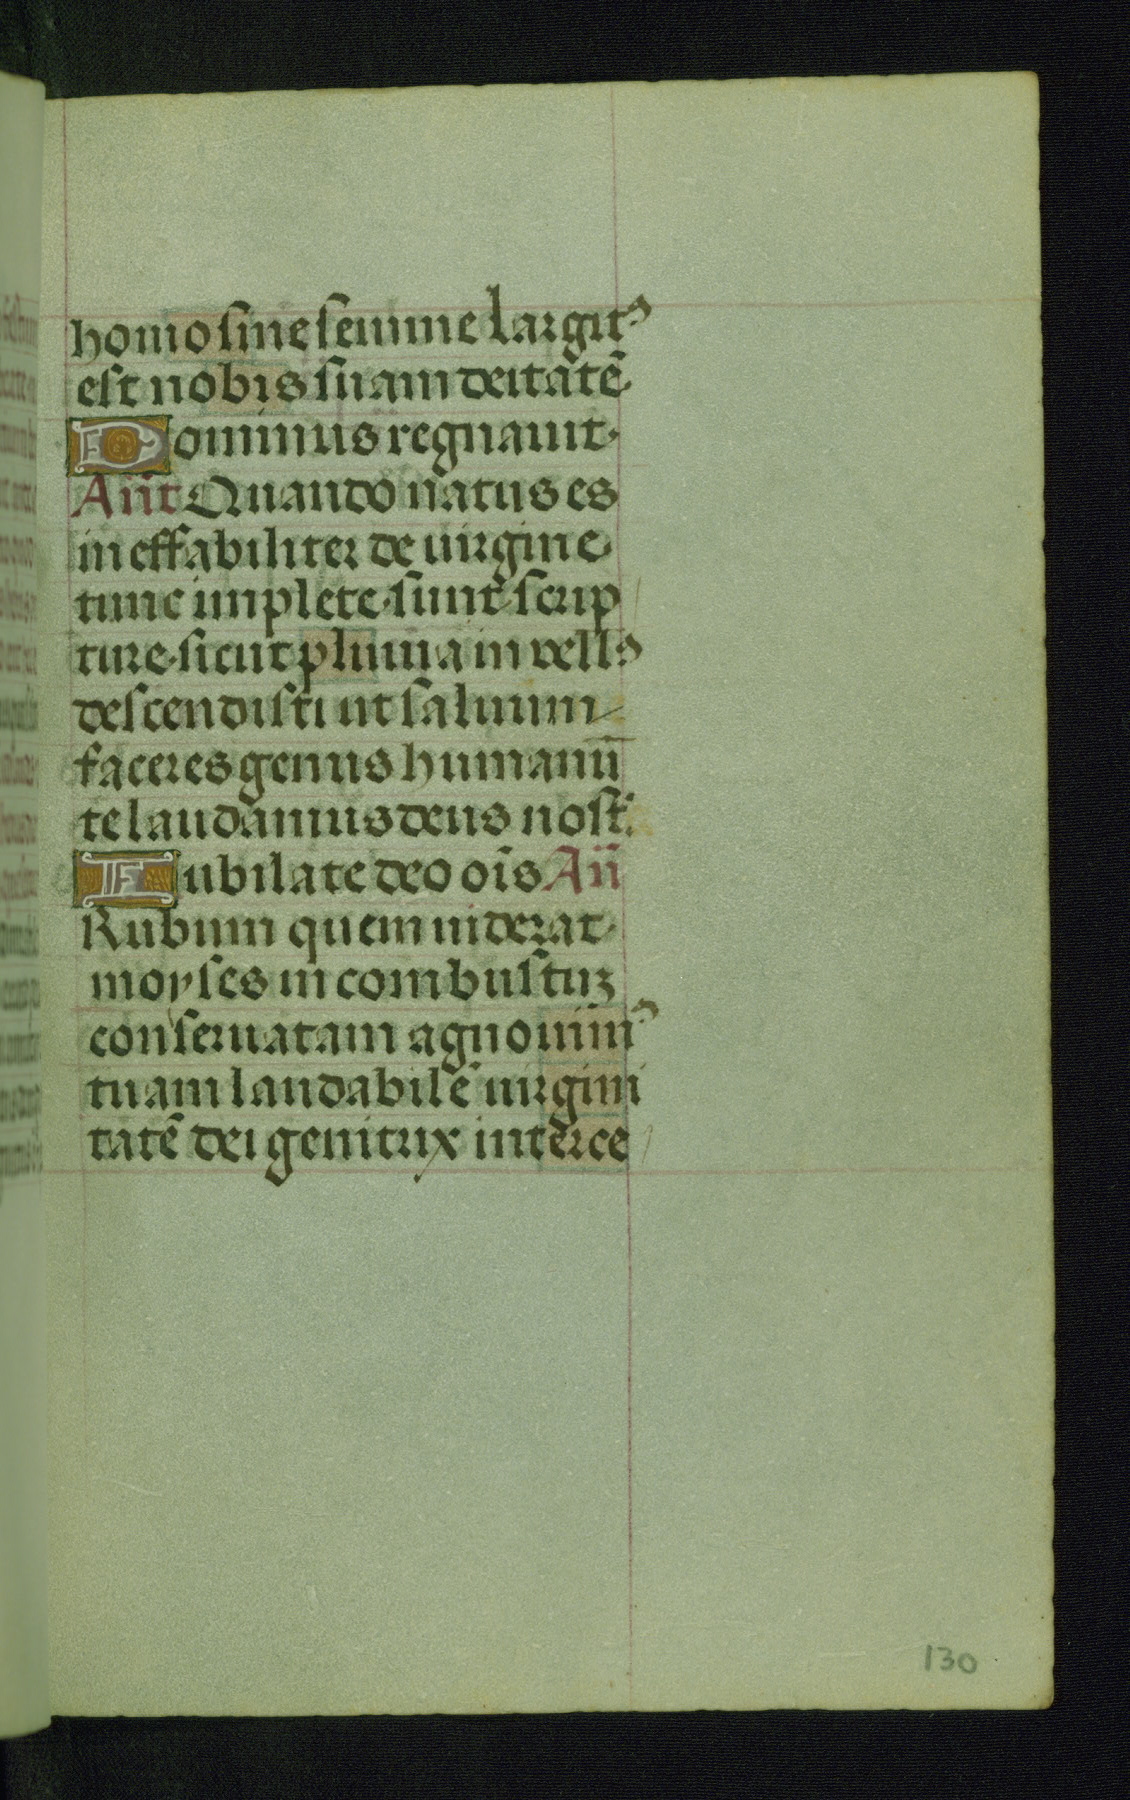 homo sine semine largitꝰ
est nobis suam deitatē
Dominus regnauit·
Añt Quando natus es
ineffabiliter de uirgine·
tunc implete sunt scrip
ture·sicut pluuia in vellꝰ
descendisti ut saluum
faceres genus humanū
te laudamus deus nost̃
Iubilate deo oı̄s Añ
Rubum quem uiderat
moyses incombustuꝫ
conseruatam agnouimꝰ
tuam laudabilē uirgini
tatē dei genitrix interce
130